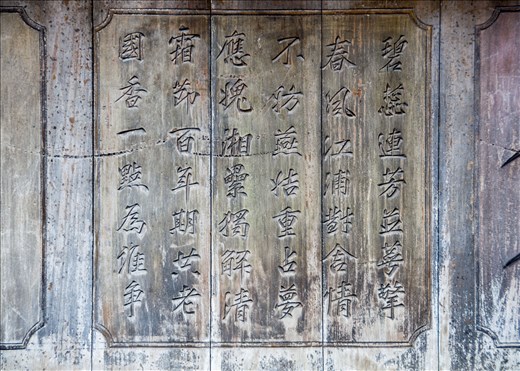 碧蕊連芳並蕚擎
春風江浦對含情
不妨燕姞重占夢
應愧湘纍獨解清
霜節百年期共老
國香一點為誰爭